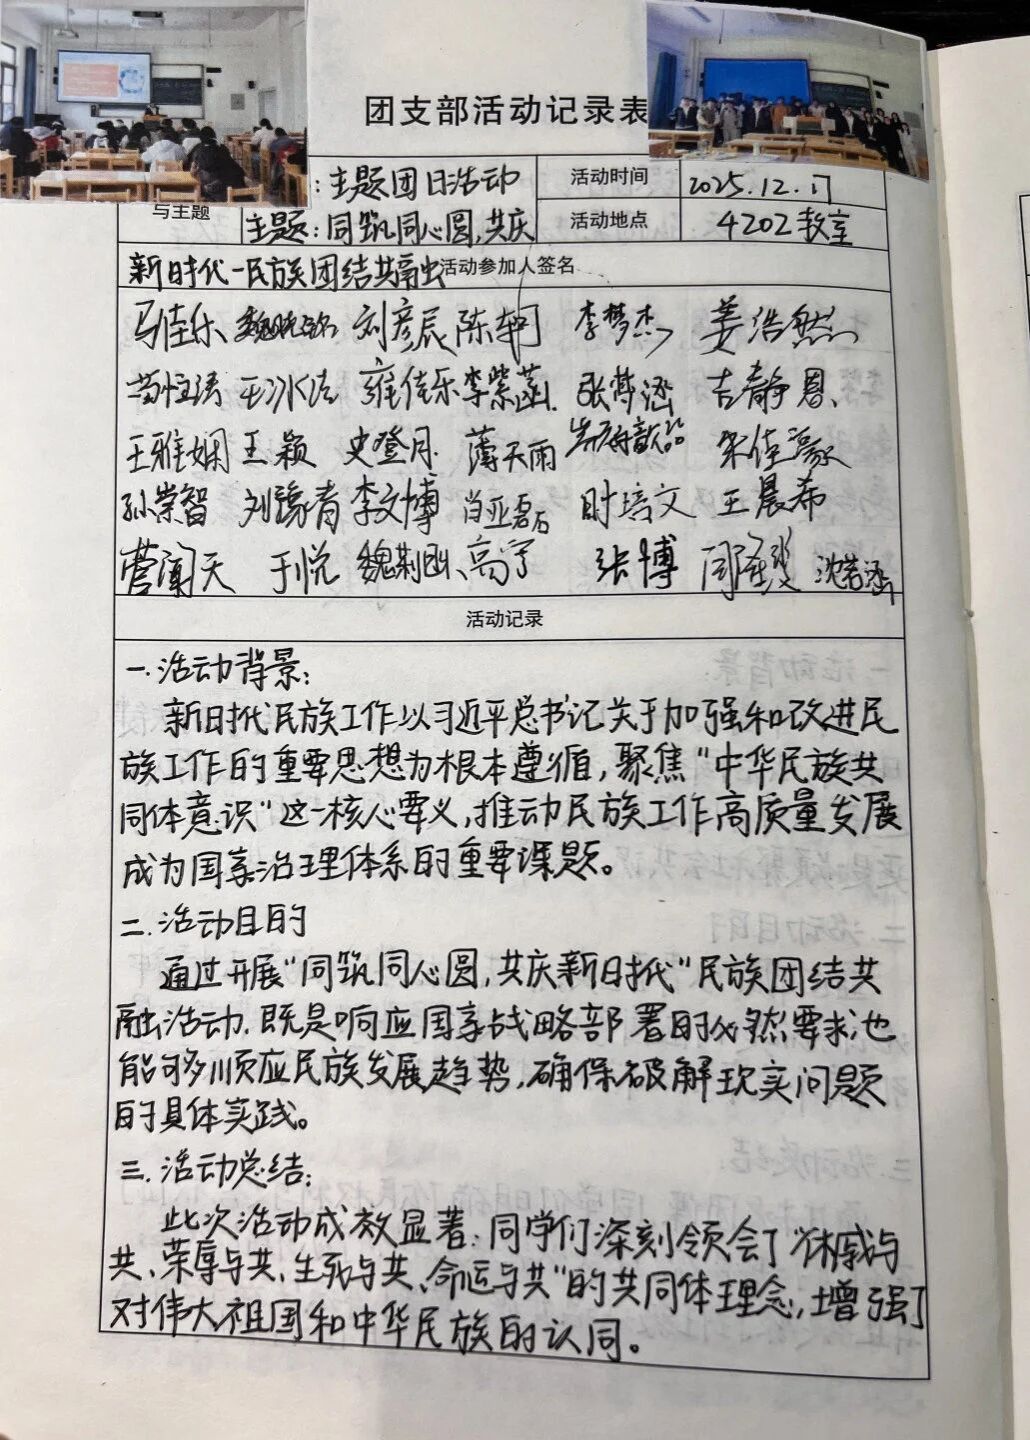 团支部活动记录表
：主题团日活动
活动时间
2025.12.17
与主题
主题：同筑同心圆,共庆
活动地点
4202教室
新时代-民族团结共融
活动参加人签名
马佳乐 刘彦辰 陈轲 李梦杰 姜浩然
苟恒语 王冰洁 雍佳乐 李紫菡 张梦涵 吉静恩
王雅娴 王颖 史登月 薄天雨 朱佳濠
孙崇智 刘豫青 李文博 肖亚磊 时培文 王晨希
菅闻天 于悦 魏荆 高宁 张博 沈若涵
活动记录
一.活动背景：
新时代民族工作以习近平总书记关于加强和改进民
族工作的重要思想为根本遵循,聚焦"中华民族共
同体意识"这一核心要义,推动民族工作高质量发展
成为国家治理体系的重要课题。
二.活动目的
通过开展"同筑同心圆,共庆新时代"民族团结共
融活动,既是响应国家战略部署的必然要求,也
能够顺应民族发展趋势,确保破解现实问题
的具体实践。
三.活动总结：
此次活动成效显著:同学们深刻领会了"休戚与
共、荣辱与共、生死与共、命运与共"的共同体理念,增强了
对伟大祖国和中华民族的认同。